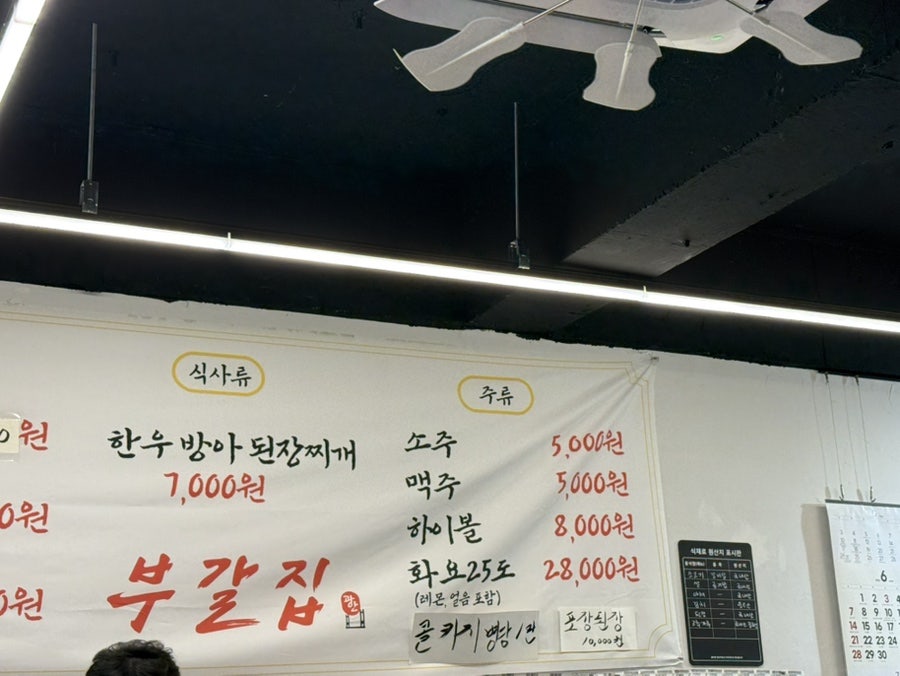 원
원
원
식사류
한우 방아 된장찌개
7,000원
부갈집
광안
주류
소주 5,000원
맥주 5,000원
하이볼 8,000원
화요25도 28,000원
(레몬, 얼음 포함)
콜키지 병당 1만
포장된장
10,000원
식재료 원산지 표시판
6
1 2 3 4
7 8 9 10 11
14 15 16 17 18
21 22 23 24 25
28 29 30